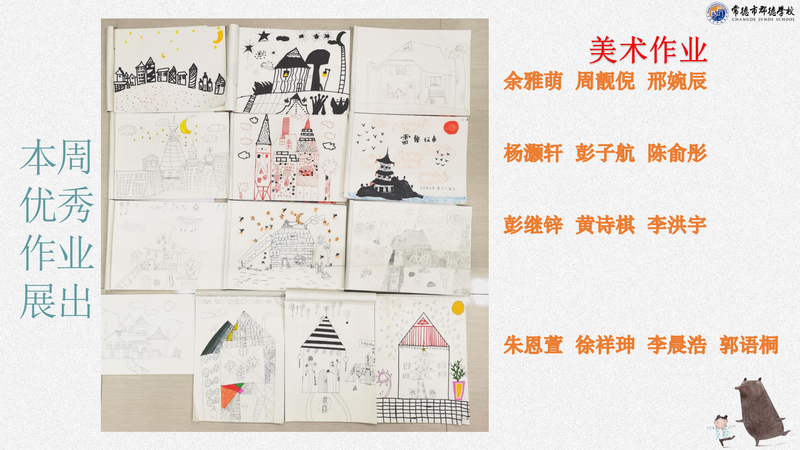 常德市郡德学校
CHANGDE JUNDE SCHOOL
美术作业
余雅萌 周靓倪 邢婉辰
杨灏轩 彭子航 陈俞彤
彭继锌 黄诗棋 李洪宇
朱恩萱 徐祥珅 李晨浩 郭语桐
本周
优秀
作业
展出